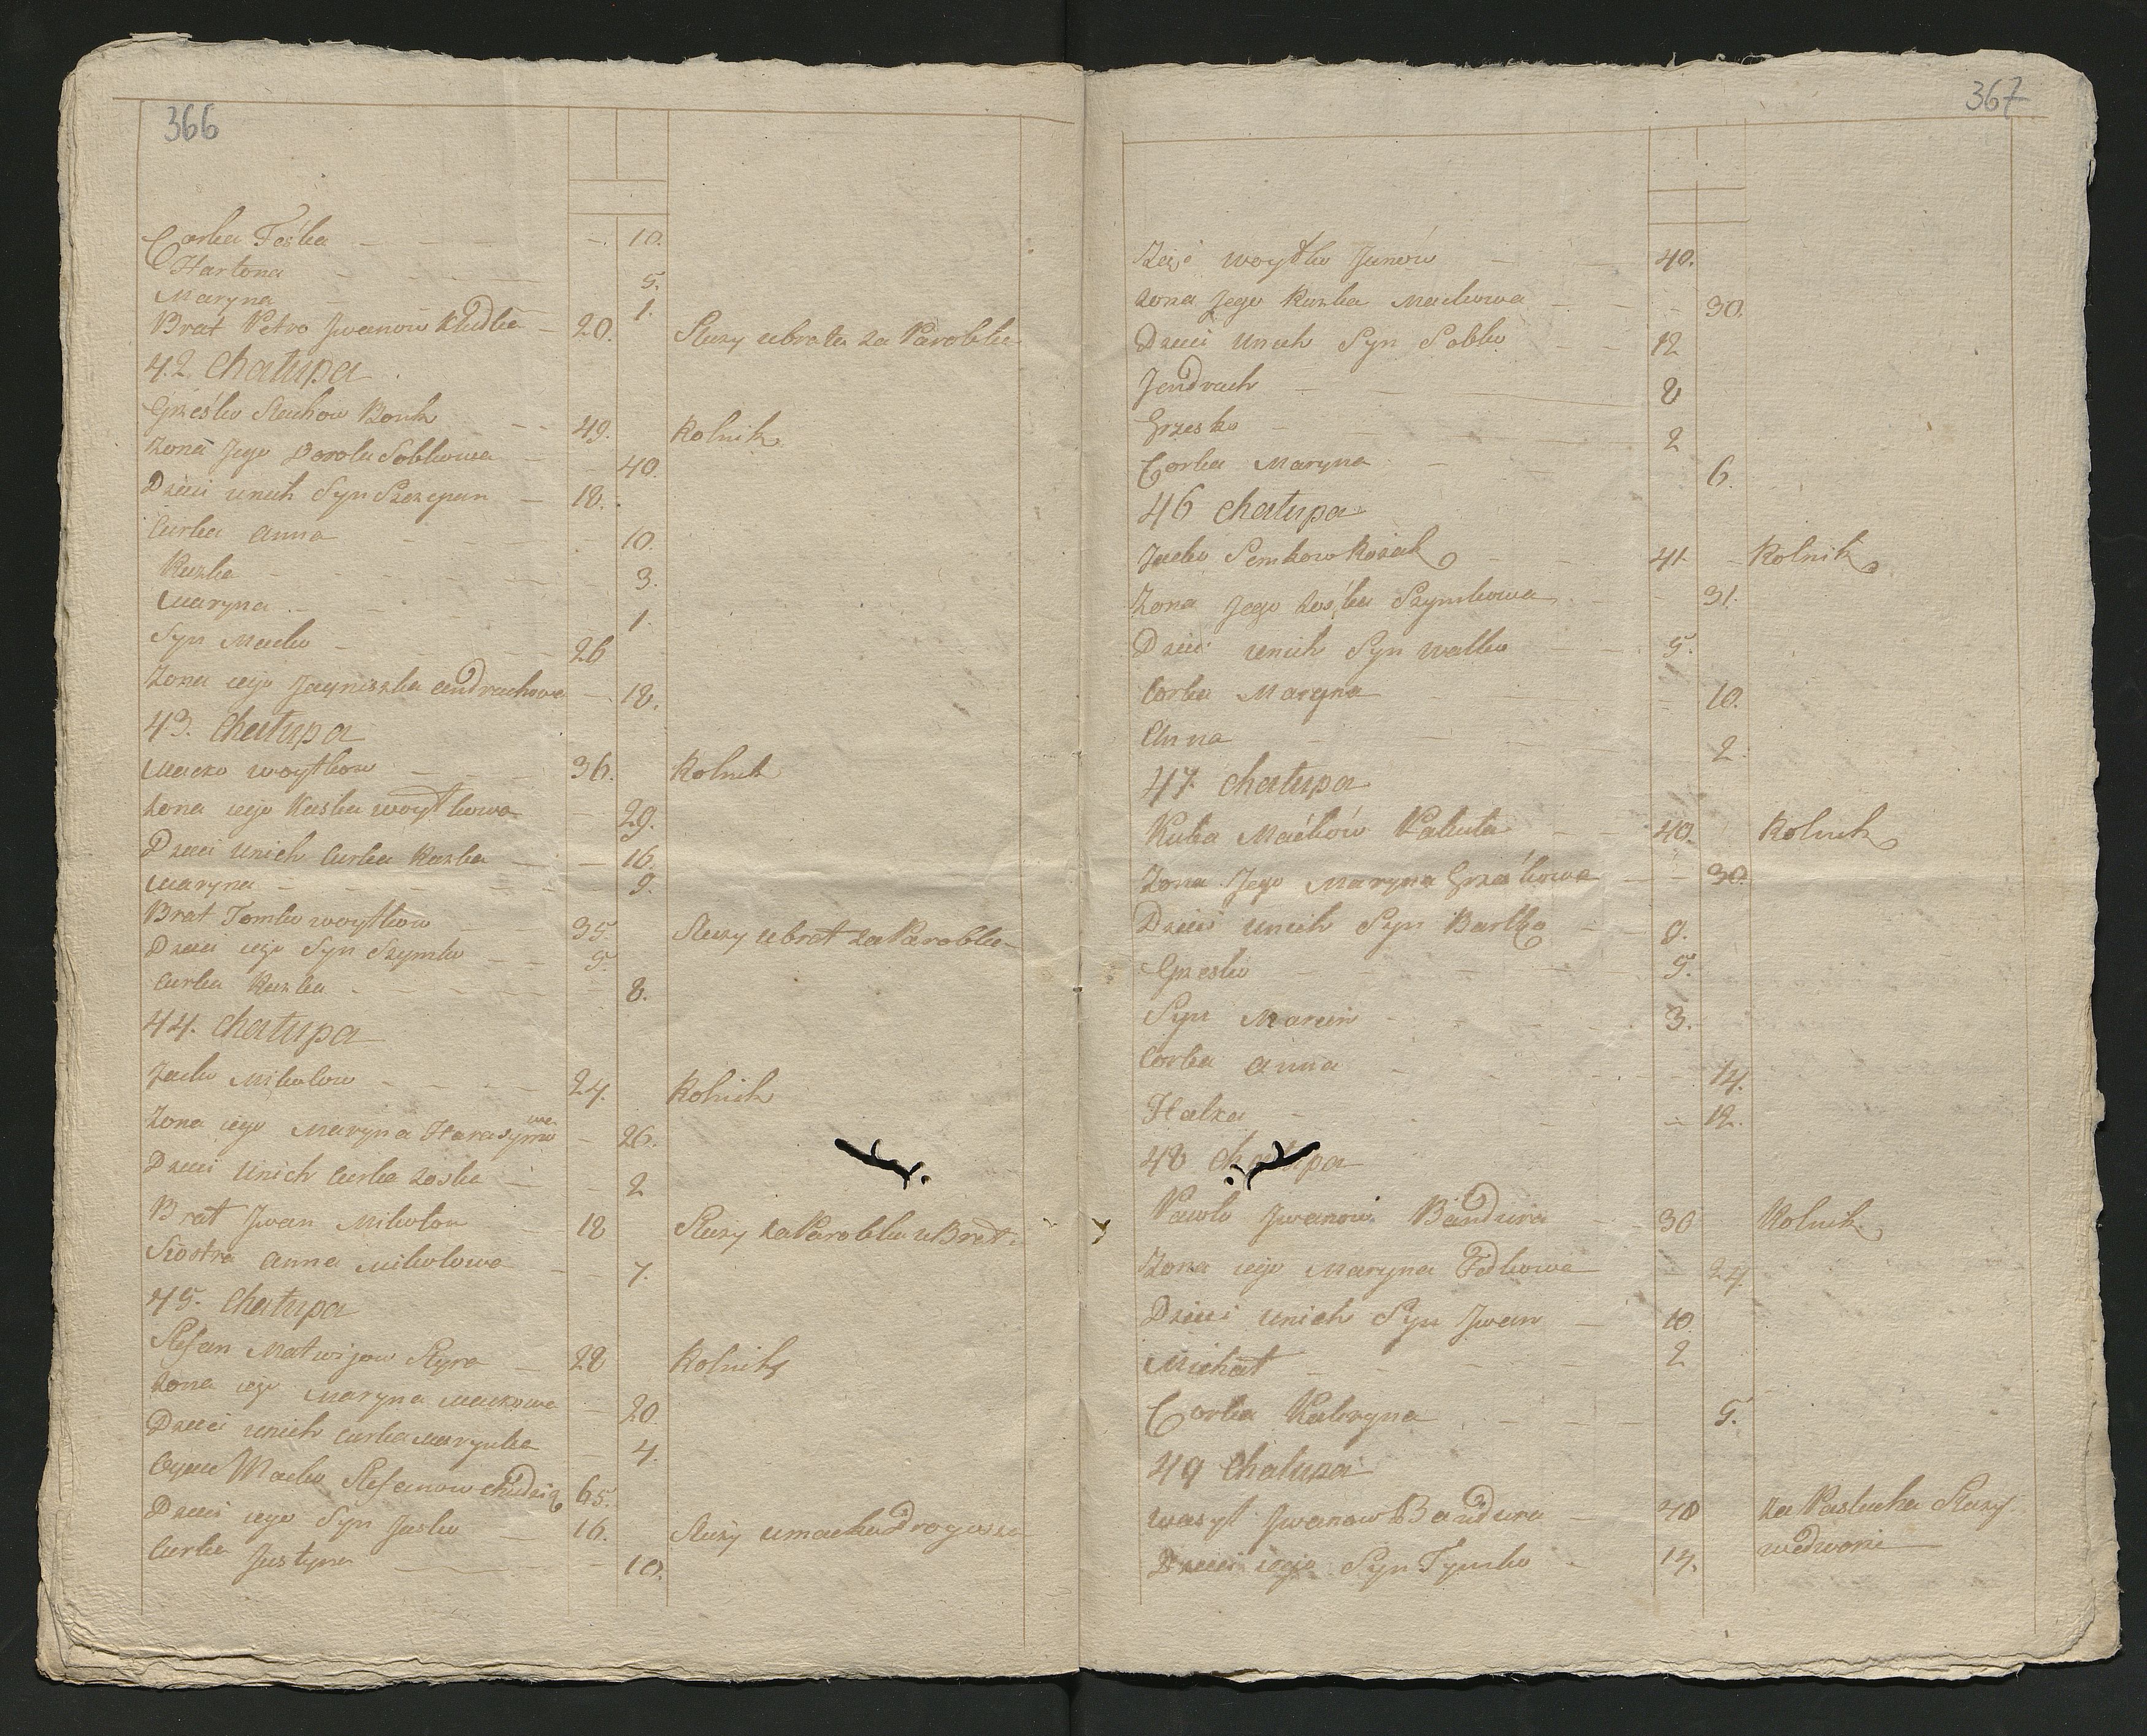 366
Corka Feśka - - - 10.
Hartona - - 5.
Maryna - 1.
Brat Petro Jwanow Kludka - 20. Służy ubrata za Parobka
42 Chałupa
Grześko Stachow Bonk - - 49. Rolnik
Zona Jego Dorota Sobkowa - - 40.
Dzieci unich Syn Szczepan - 18.
Curka Anna - - - 10.
Kaśka - - - 3.
Maryna - - 1.
Syn Macko - 26
Zona iego Jagniszka Andruchowa - - 18.
43. Chałupa
Macko woytkow - - 36. Rolnik
Zona iego Kaska woytkowa - 29.
Dzieci Unich Curka Kaska - - 16.
Maryna - - - 9.
Brat Tomko woytkow - 35. Służy ubrat za Parobka
Dzieci iego Syn Szymko - - 5.
Curka Kaska - - - 8.
44. Chałupa
Jacko Mikołow - - - 24. Rolnik
Zona iego Maryna Harasymowa - 26.
Dzieci Unich Curka Zoska - - 2
Brat Jwan Mikołow - 18 Służy za Parobka u Brat.
Siostra Anna Mikołowa - - 7.
45. Chałupa
Stefan Matwijow Styra - 28 Rolnik
Zona iego Maryna Mackowa - 20.
Dzieci unich Curka Marynka - 4.
Oyciec Macko Stefanow 65.
Dzieci iego Syn Jasko - 16. Służy umacka
Curka Justyna - - 10.
367
woytko Janow - - 40.
Zona Jego Kaska Mackowa - - - 30.
Dzieci Unich Syn Sobko - - 12
Jendruch - - 8
Grzesko - - 2
Corka Maryna - - 6.
46 Chałupa
Jacko Semkow Kozak - - 41. - Rolnik
Zona Jego Zośka Szymkowa - - 31.
Dzieci unich Syn walko - - 5.
Corka Maryna - - 10.
Anna - - - 2.
47. Chałupa
Kuba Maćków - - 40. Rolnik
Zona Jego Maryna Grześkowa - - 30.
Dzieci unich Syn Bartko - - 8.
Grzesko - - - 5.
Syn Marcin - - - 3.
Corka Anna - - - 14.
Halka - - - 12.
48 Chałupa
Pawło Jwanow Bandura - 30 Rolnik
Zona iego Maryna Fedkowa - 24.
Dzieci unich Syn Jwan - 10
Michał - - - 2
Corka Katryna - - - 5.
49 Chałupa
wasyl Jwanow Bandura - 40 za Pastucha Służy
wedworze
Dzieci iego Syn Tymko - 14.